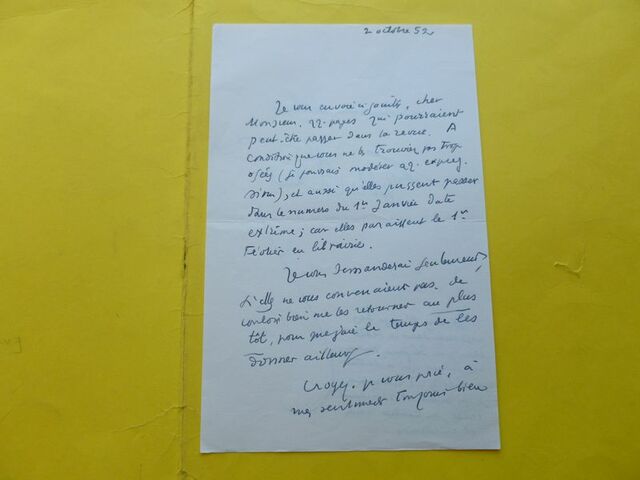 2 octobre 52
Je vous envoie ci-joints, cher
Monsieur, qq. pages qui pourraient
peut-être passer dans la revue. A
condition que vous ne les trouviez pas trop
osées (je pourrais modérer qq. expres-
sions); et aussi qu'elles pussent passer
dans le numéro du 1er Janvier date
extrême; car elles paraissent le 1er
Février en librairie.
Je vous demanderai seulement,
si elles ne vous convenaient pas, de
vouloir bien me les retourner au plus
tôt, pour que j'aie le temps de les
donner ailleurs.
Croyez, je vous prie, à
mes sentiments toujours bien